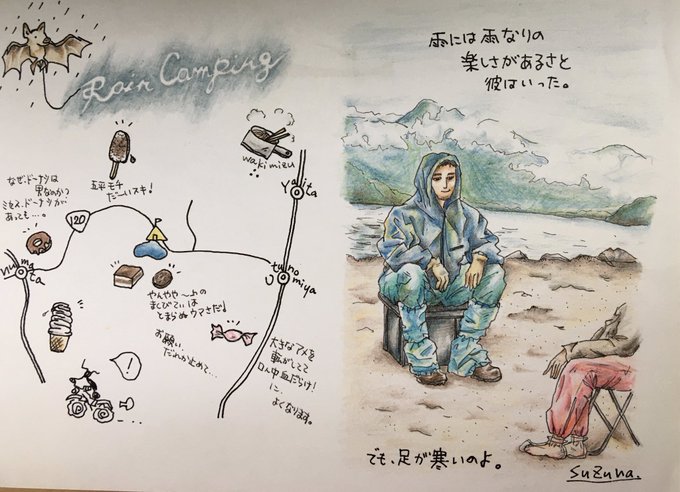 Rain Camping
五平モチ
だーいスキ!
waki mizu
yaita
なぜ、ドーナツは
男なのか?
ミセス.ドーナツが
あっても…。
120
numata
utunomiya
やんやや〜上の
まくびてぃは
とまらぬウマさだ!
お願い
だれか止めて…
大きなアメを
転がしてて
口ん中血だらけ!
に
よくなります。
!
雨には雨なりの
楽しさがあるさと
彼はいった。
でも、足が寒いのよ。
Suzuna.